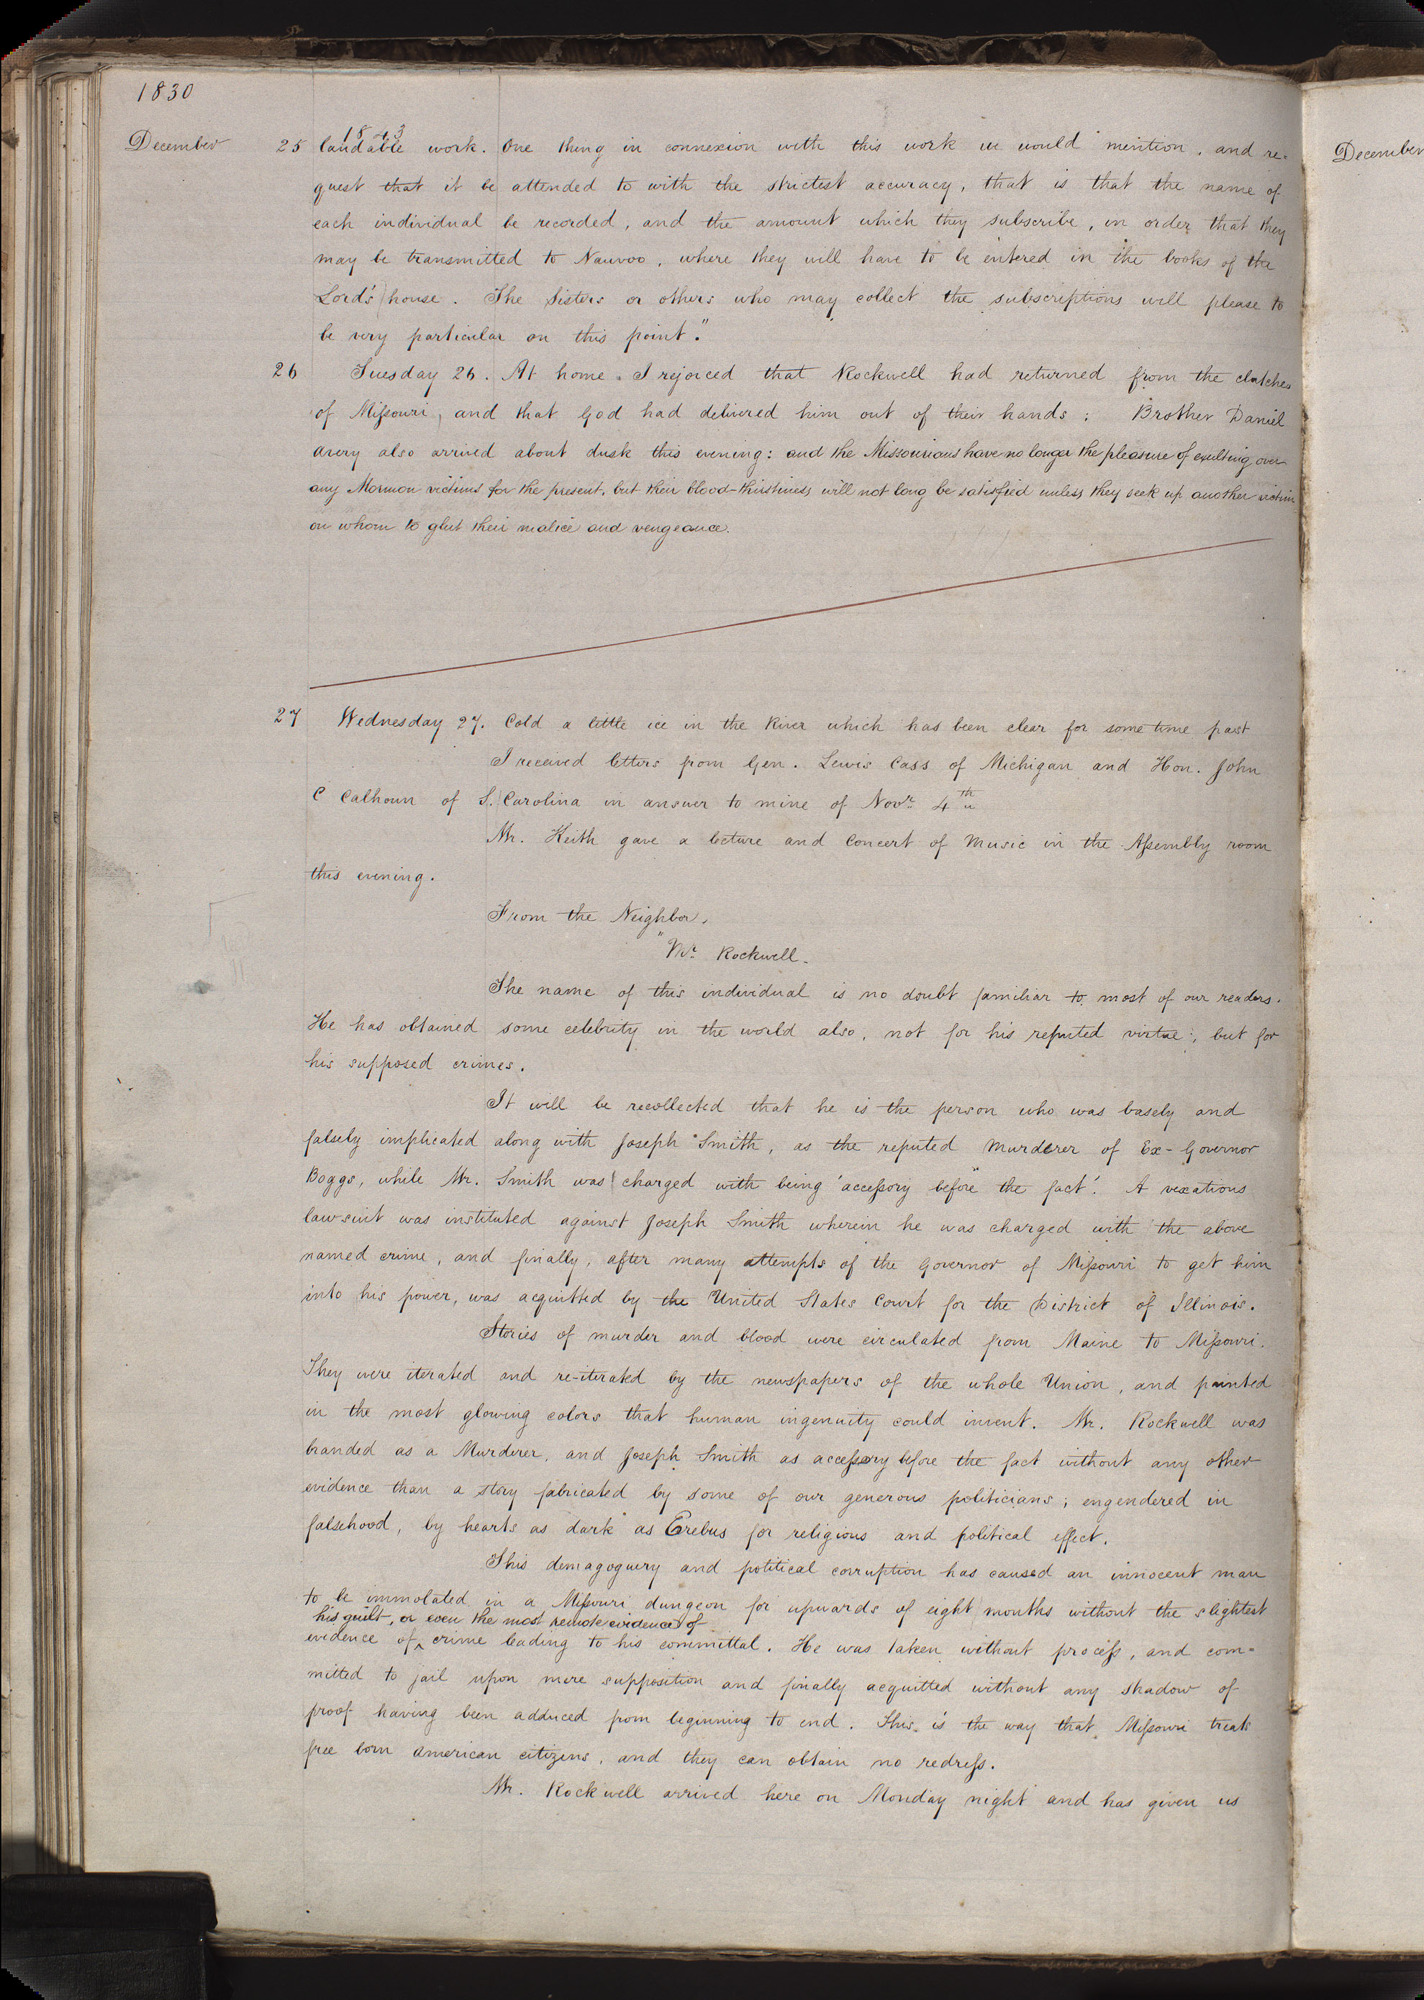 1830
December
1843
25 laudable work. One thing in connexion with this work we would mention, and re=
quest that it be attended to with the strictest accuracy, that is that the name of
each individual be recorded, and the amount which they subscribe, in order that they
may be transmitted to Nauvoo, where they will have to be entered in the books of the
Lord's house. The Sisters or others who may collect the subscriptions will please to
be very particular on this point."
26 Tuesday 26. At home. I rejoiced that Rockwell had returned from the clutches
of Missouri, and that God had delivered him out of their hands; Brother Daniel
Avery also arrived about dusk this evening: and the Missourians have no longer the pleasure of exulting over
any Mormon victims for the present, but their blood-thirstiness will not long be satisfied unless they seek up another victim
on whom to glut their malice and vengeance.
27 Wednesday 27. Cold a little ice in the River which has been clear for some time past
I received letters from Gen. Lewis Cass of Michigan and Hon. John
C Calhoun of S. Carolina in answer to mine of Novr. 4th
Mr. Keith gave a lecture and Concert of Music in the Assembly room
this evening.
From the Neighbor,
"Mr. Rockwell.
The name of this individual is no doubt familiar to most of our readers.
He has obtained some celebrity in the world also, not for his reputed virtue, but for
his supposed crimes.
It will be recollected that he is the person who was basely and
falsely implicated along with Joseph Smith, as the reputed murderer of Ex-Governor
Boggs, while Mr. Smith was charged with being 'accessory before the fact'. A vexatious
lawsuit was instituted against Joseph Smith wherein he was charged with the above
named crime, and finally, after many attempts of the Governor of Missouri to get him
into his power, was acquitted by the United States Court for the District of Illinois.
Stories of murder and blood were circulated from Maine to Missouri.
They were iterated and re-iterated by the newspapers of the whole Union, and painted
in the most glowing colors that human ingenuity could invent. Mr. Rockwell was
branded as a Murderer, and Joseph Smith as accessory before the fact without any other
evidence than a story fabricated by some of our generous politicians; engendered in
falsehood, by hearts as dark as Erebus for religious and political effect.
This demagoguery and political corruption has caused an innocent man
to be immolated in a Missouri dungeon for upwards of eight months without the slightest
his guilt, or even the most remote evidence of
evidence of ^ crime leading to his committal. He was taken without process, and com=
mitted to jail upon mere supposition and finally acquitted without any shadow of
proof having been adduced from beginning to end. This is the way that Missouri treats
free born American citizens, and they can obtain no redress.
Mr. Rockwell arrived here on Monday night and has given us
December